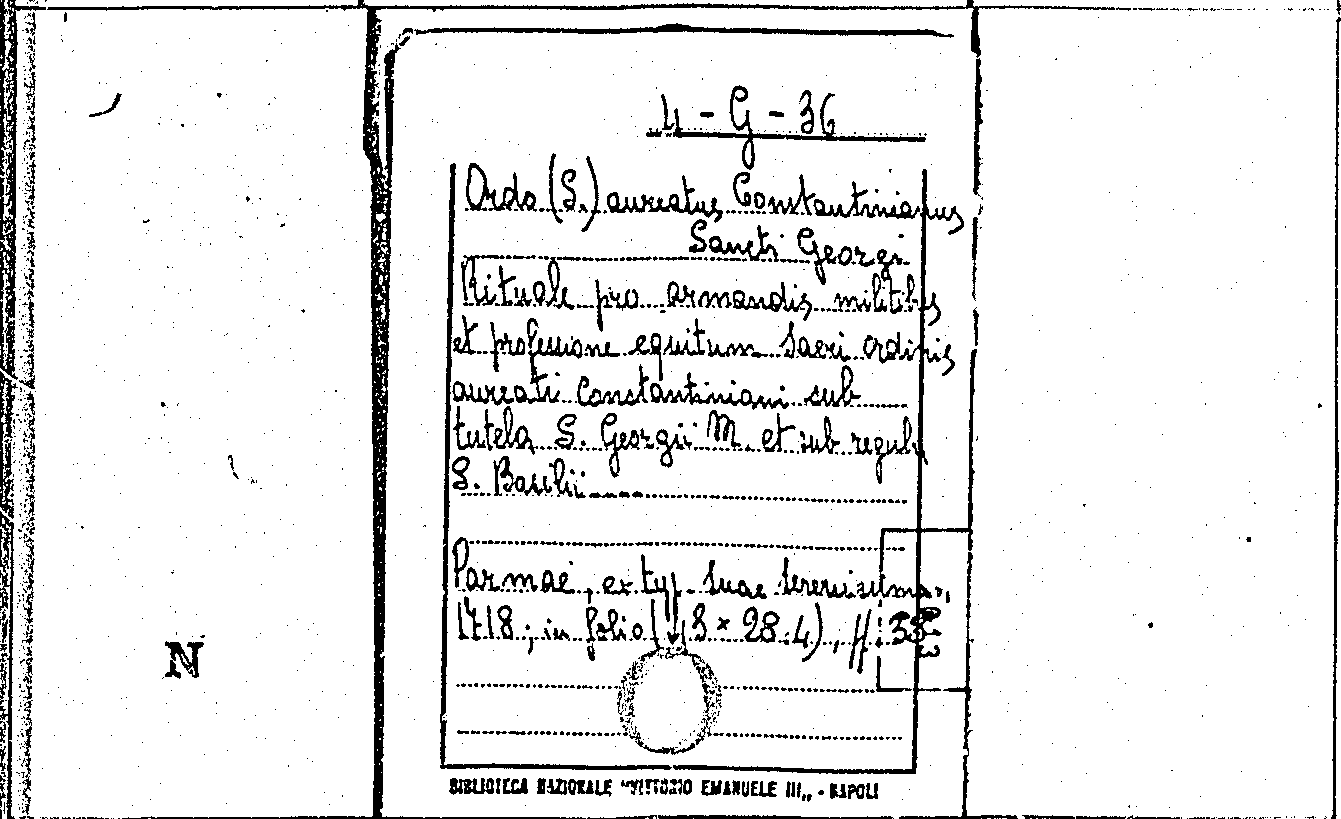 4 - G - 36
Ordo (S.) aureatus Constantinianus
Sancti Georgi
Rituale pro armandis militibus
et professione equitum Sacri ordinis
aureati Constantiniani sub
tutela S. Georgii M. et sub regula
S. Basilii.....
Parmae, ex typ. Suae Serenissimae,
1718; in folio ( 8 × 28.4), ff. 38
N
BIBLIOTECA NAZIONALE "VITTORIO EMANUELE III„ - NAPOLI